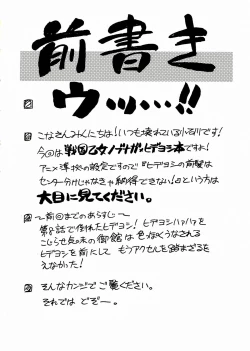 前書き
ウッ…!!
こなさんみんにちは!いつも壊れている小石川です!
今回は戦国乙女ノブナガ×ヒデヨシ本ですわ!
アニメ準拠の設定ですので『ヒデヨシの前髪は
センター分けじゃなきゃ納得できない!』という方は
大目に見てください。
〜前回までのあらすじ〜
第8話で倒れたヒデヨシ!ヒデヨシハァハァを
こじらせ気味の御館は色っぽくうなされる
ヒデヨシを前にしてもうアクセルを踏まざるを
えなかった!
そんなカンジでご覧ください。
それではどぞー。